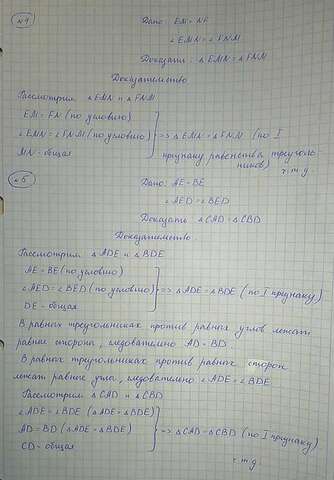 №4 Дано: EM = NF
∠EMN = ∠FNM
Доказать: △EMN = △FNM
Доказательство
Рассмотрим △EMN и △FNM
EM = FN (по условию)
∠EMN = ∠FNM (по условию) => △EMN = △FNM (по I
MN - общая признаку равенства треуголь
ников)
ч.т.д.
№5 Дано: AE = BE
∠AED = ∠BED
Доказать △CAD = △CBD
Доказательство
Рассмотрим △ADE и △BDE
AE = BE (по условию)
∠AED = ∠BED (по условию) => △ADE = △BDE (по I признаку)
DE - общая
В равных треугольниках против равных углов лежат
равные стороны, следовательно AD = BD
В равных треугольниках против равных сторон
лежат равные углы, следовательно ∠ADE = ∠BDE
Рассмотрим △CAD и △CBD
∠ADE = ∠BDE (△ADE = △BDE)
AD = BD (△ADE = △BDE) => △CAD = △CBD (по I признаку)
CD - общая
ч.т.д